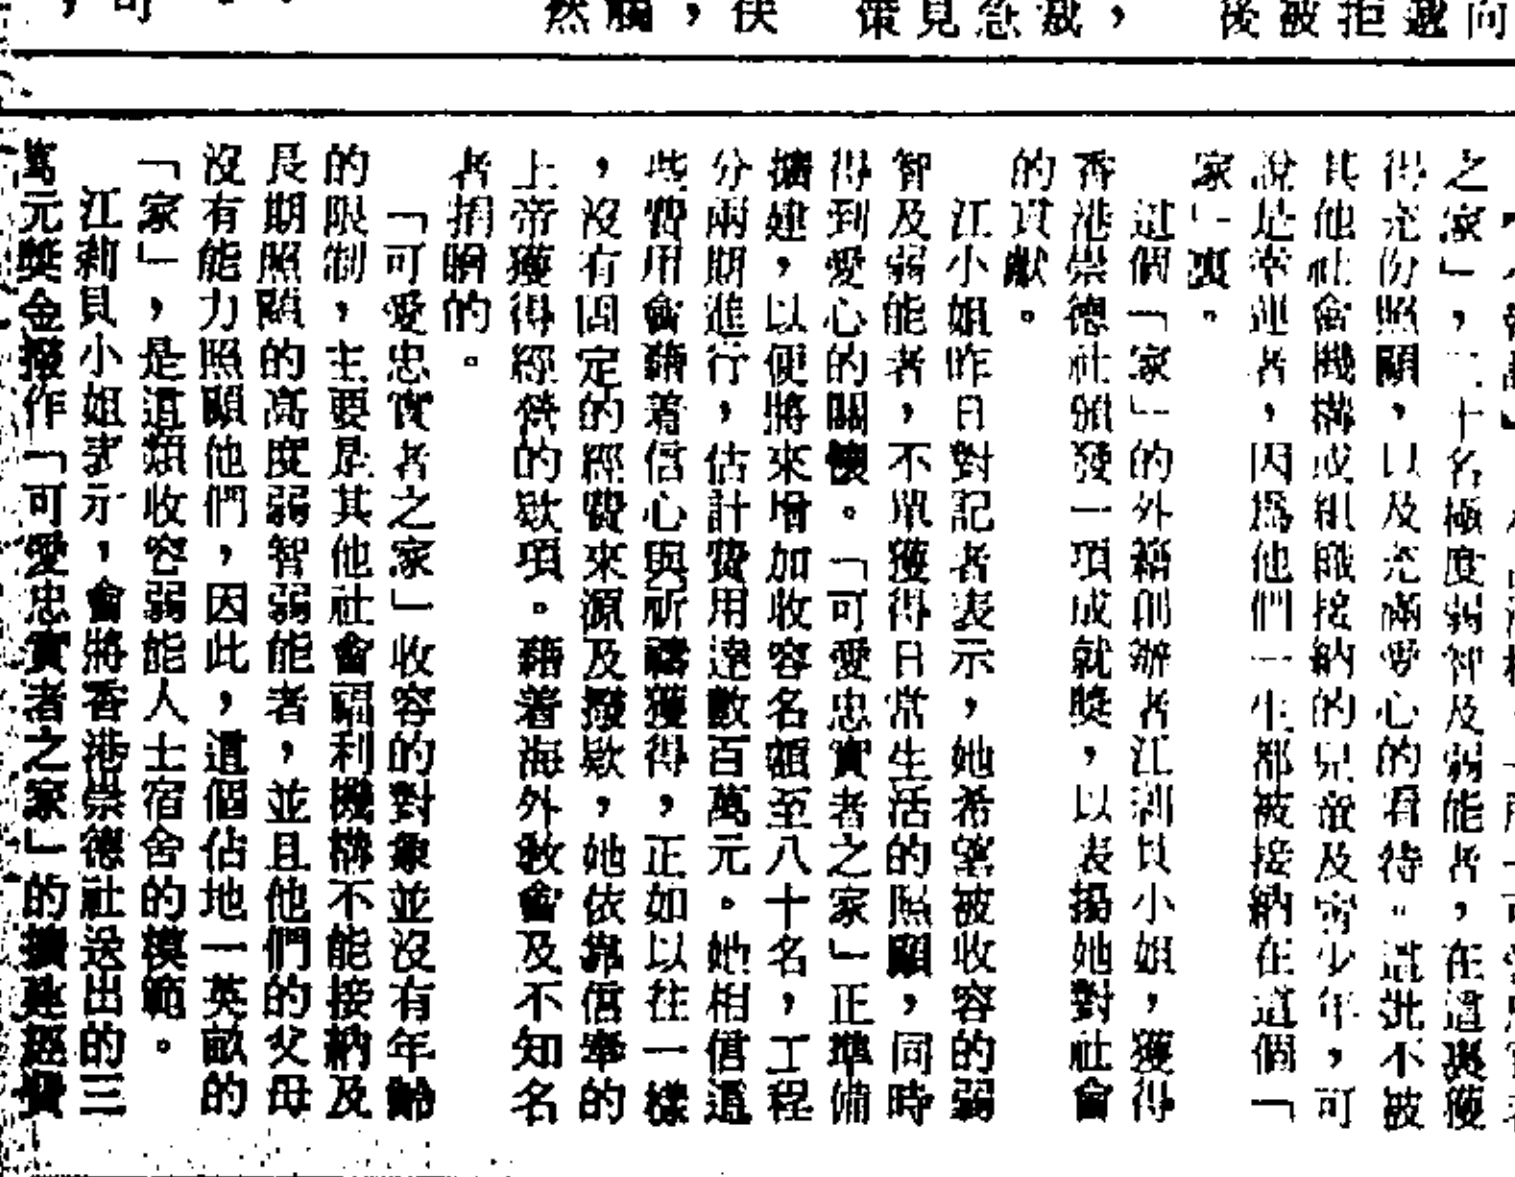 後被拒遞向
策見急裁，
然觸，快
，可
之家」，二十名極度弱智及弱能者，在這裏獲
得充份照顧，以及充滿愛心的看待。這批不被
其他社會機構或組織接納的兒童及青少年，可
說是幸運者，因爲他們一生都被接納在這個「
家」裏。
這個「家」的外籍創辦者江莉貝小姐，獲得
香港崇德社頒發一項成就獎，以表揚她對社會
的貢獻。
江小姐昨日對記者表示，她希望被收容的弱
智及弱能者，不單獲得日常生活的照顧，同時
得到愛心的關懷。「可愛忠實者之家」正準備
擴建，以便將來增加收容名額至八十名，工程
分兩期進行，估計費用達數百萬元。她相信這
些費用會藉着信心與祈禱獲得，正如以往一樣
，沒有固定的經費來源及撥款，她依靠信奉的
上帝獲得經營的款項。藉着海外教會及不知名
者捐贈的。
「可愛忠實者之家」收容的對象並沒有年齡
的限制，主要是其他社會福利機構不能接納及
長期照顧的高度弱智弱能者，並且他們的父母
沒有能力照顧他們，因此，這個佔地一英畝的
「家」，是這類收容弱能人士宿舍的模範。
江莉貝小姐表示，會將香港崇德社送出的三
萬元獎金撥作「可愛忠實者之家」的擴建經費